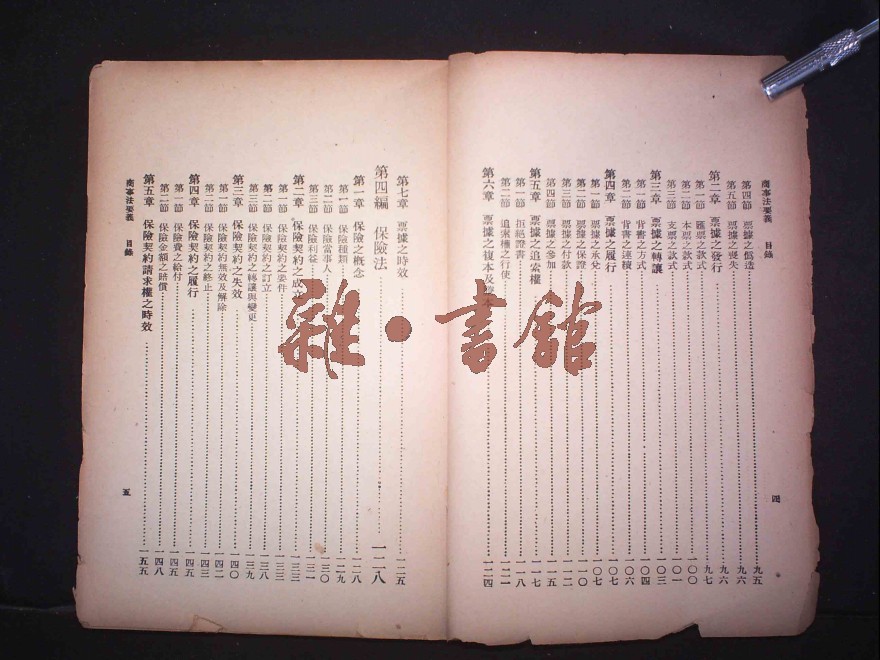 商事法要義　目錄
第四節　票據之僞造……九五
第五節　票據之喪失……九六
第二章　票據之發行……九七
第一節　匯票之款式……九六
第二節　本票之款式……一〇〇
第三節　支票之款式……一〇一
第三章　票據之轉讓……一〇三
第一節　背書之方式……一〇四
第二節　背書之連續……一〇六
第四章　票據之履行……一〇七
第一節　票據之承兌……一〇七
第二節　票據之保證……一一〇
第三節　票據之付款……一一二
第四節　票據之參加……一一五
第五章　票據之追索權……一一七
第一節　拒絕證書……一一八
第二節　追索權之行使……一二一
第六章　票據之複本及謄本……一二四
四
第七章　票據之時效……一二五
第四編　保險法……一二八
第一章　保險之概念……一二八
第一節　保險種類……一二九
第二節　保險當事人……一三〇
第三節　保險利益……一三一
第二章　保險契約之成立……一三三
第一節　保險契約之要件……一三三
第二節　保險契約之訂立……一三八
第三節　保險契約之轉讓與變更……一三九
第三章　保險契約之失效……一四〇
第一節　保險契約無效及解除……一四二
第二節　保險契約之終止……一四三
第四章　保險契約之履行……一四五
第一節　保險費之給付……一四五
第二節　保險金額之賠償……一四八
第五章　保險契約請求權之時效……一五五
商事法要義　目錄
五
雜·書館